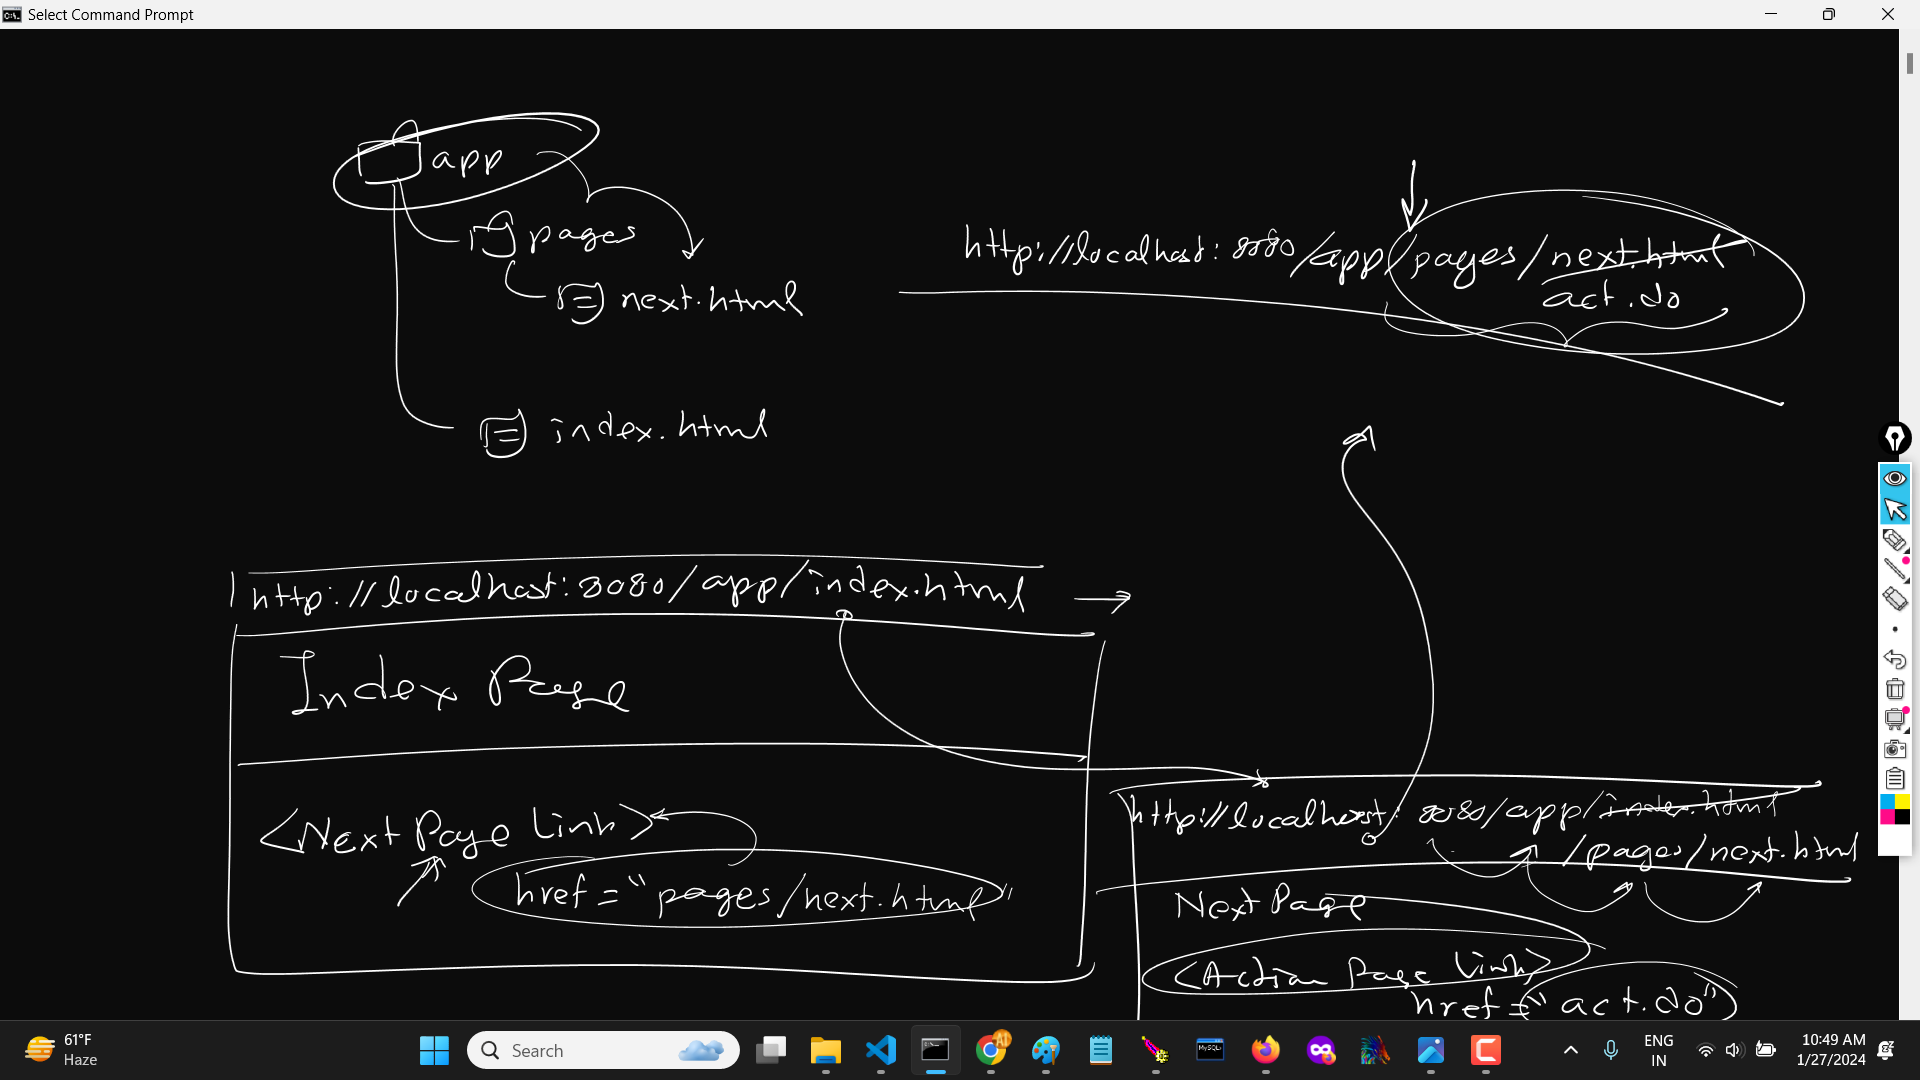 Select Command Prompt
app
pages
next.html
index.html
http://localhost:8080/app/pages/next.html
act.do
http://localhost:8080/app/index.html
Index Page
<Next Page Link>
href="pages/next.html"
http://localhost:8080/app/index.html
/pages/next.html
Next Page
<Action Page Link>
href="act.do"
61°F
Haze
Search
MySQL
ENG
IN
10:49 AM
1/27/2024